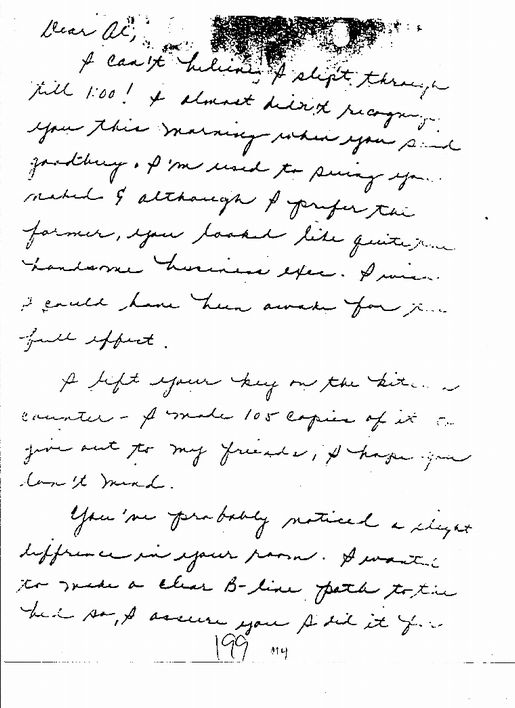 Dear Al,
I can't believe I slept through
till 1:00! I almost didn't recogniz
you this morning when you said
goodbuy. I'm used to seeing you
naked & although I prefer the
former, you looked like quite the
handsome business exec. I wish
I could have been awake for the
full effect.
I left your key on the kit
counter - I made 105 copies of it to
give out to my friends, I hope you
don't mind.
You've probably noticed a slight
diffrence in your room. I wanted
to make a clear B-line path to the
bed so, I assure you I did it for
199 M4